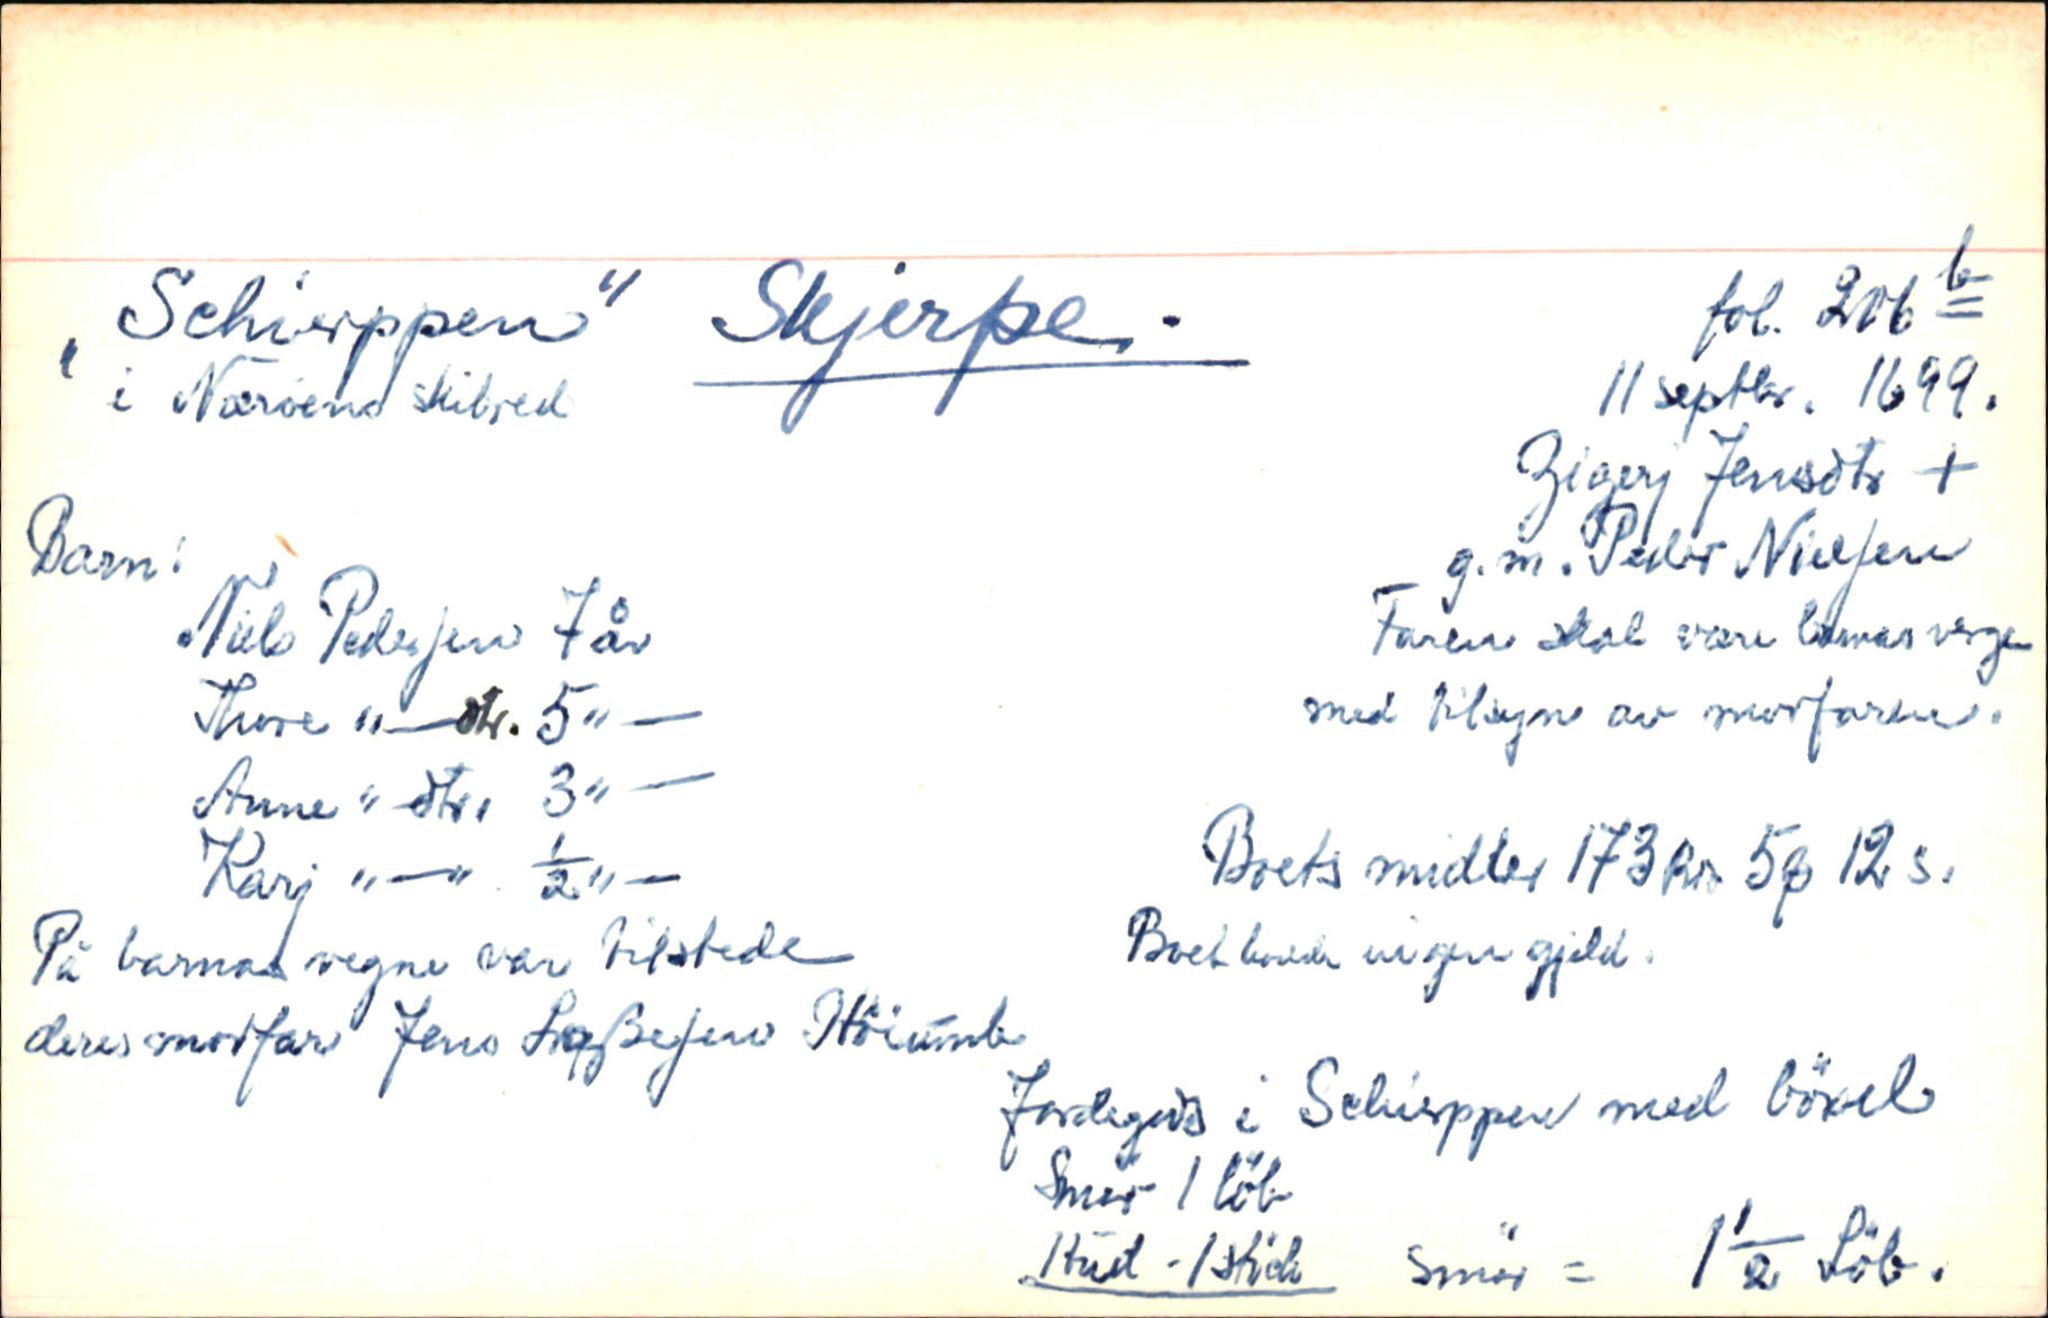 „Schierppen" Skjerpe.
i Nærøens skibred
fol. 206 b
11 septbr. 1699.
Zigerj Jensdtr +
g.m. Peder Nielsen
Faren skal være barnas verge
med tilsyn av morfaren.
Barn:
Niels Pedersen 7 år
Thore "— dtr. 5 " —
Anne " dtr. 3 " —
Karj " — " 1/2 " —
På barnas vegne var tilstede
deres morfar Jens Laſſesen Höiumb
Boets midler 173 Rdr 5 12 s.
Boet havde ingen gjeld.
Jordegods i Schierppen med böxel
Smør 1 löb
Hud - 1 smör = 1 1/2 Löb.